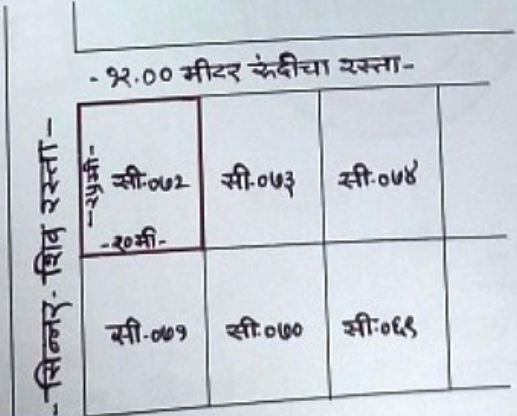 -१२.०० मीटर रुंदीचा रस्ता-
-सिन्नर-शिव रस्ता-
-२५मी-
सी-०७२
सी-०७३
सी-०७४
-२०मी-
सी-०७१
सी-०७०
सी-०६९